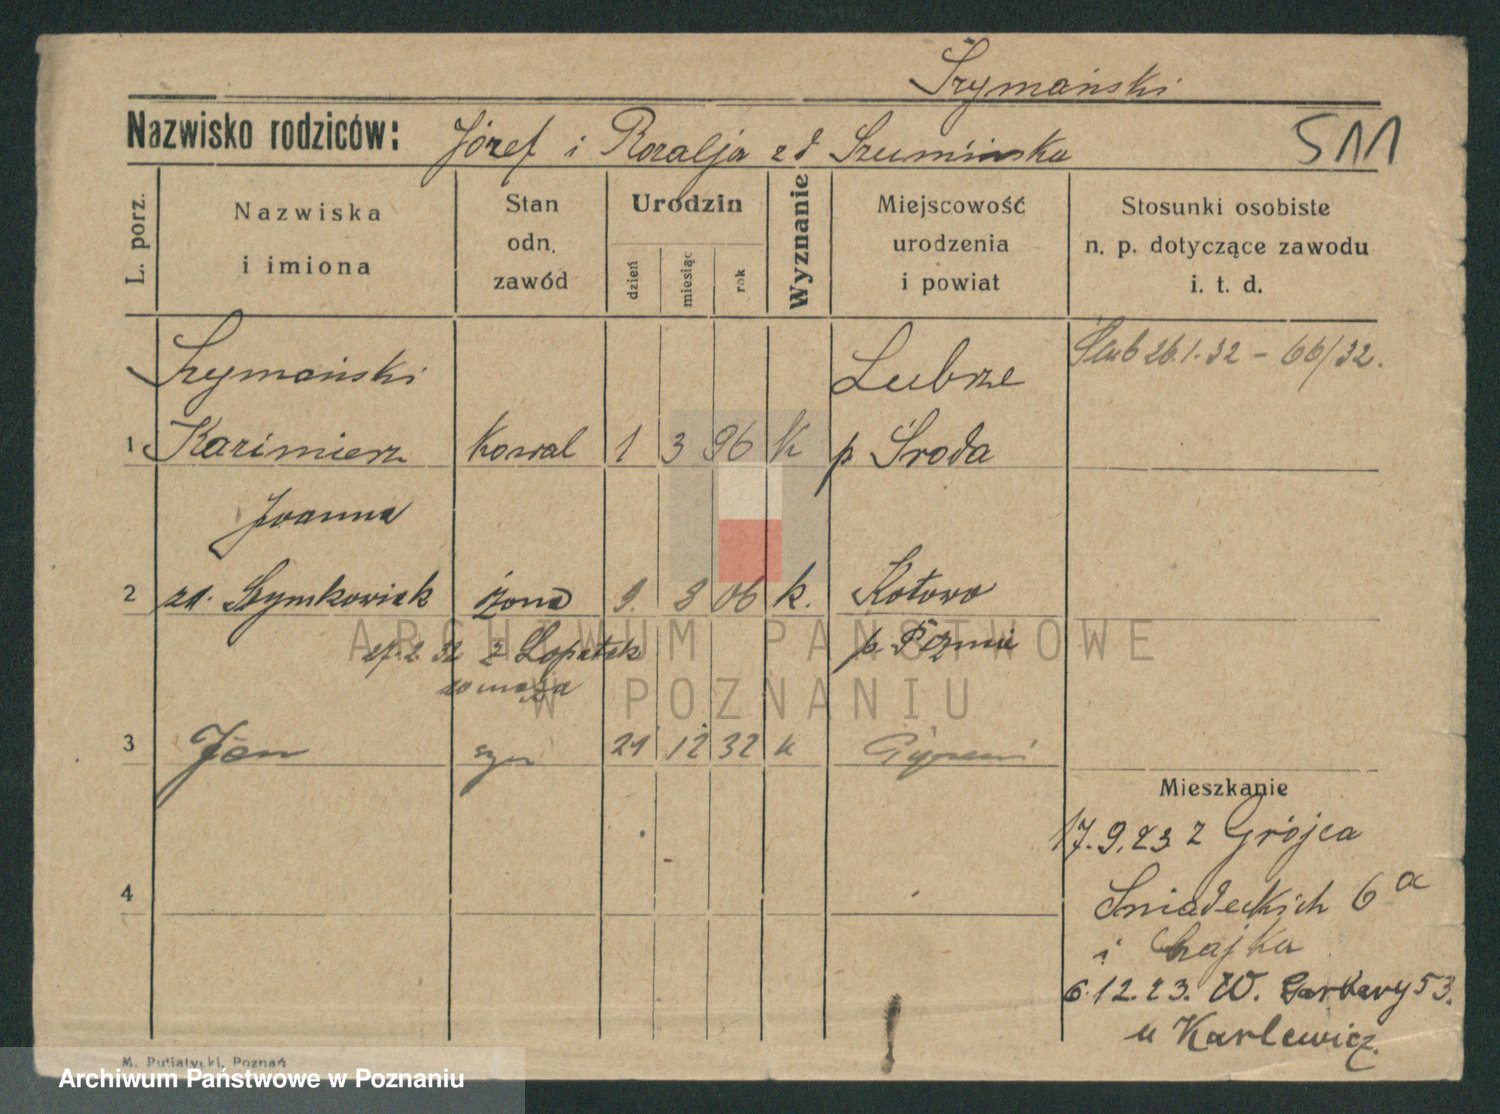 Szymański
Nazwisko rodziców: Józef i Rozalja zd Szumińska
S11
L. porz.
Nazwiska
i imiona
Stan
odn.
zawód
Urodzin
dzień
miesiąc
rok
Wyznanie
Miejscowość
urodzenia
i powiat
Stosunki osobiste
n. p. dotyczące zawodu
i. t. d.
Szymański Lubrze Ślub 26.1.32 – 66/32.
1 Kazimierz kowal 1 3 96 K p Środa
Joanna
2 zd. Szymkowiak żona 9. 8 06 k. Kotowo
27.2.32 z Łopatek p.
zamęża
3 Jan syn 21 12 32 k
Mieszkanie
17.9.23 z Grójca
4
Śniadeckich 6a
i Czajka
6.12.23. W. Garbary 53.
u Karlewicz.
M. Putiatycki, Poznań
ARCHIWUM PAŃSTWOWE
W POZNANIU
Archiwum Państwowe w Poznaniu